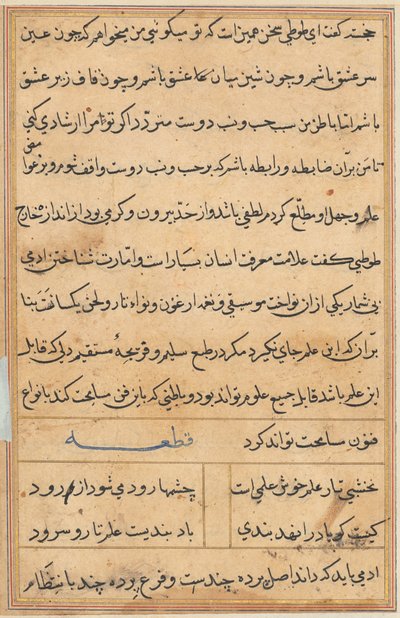 خجسته گفت ای طوطی سخن همین است که تو میگوئی من میخواهم که چون عین
سر عشق باشم و چون شین میان عشق باشم و چون قاف زیر عشق
باشم اما باطن من سبب حب و نسب دوست متردد اگر تو مرا ارشادی کنی
تا من بر آن ضابطه و رابطه باشم که بر حب و نسب دوست واقف شوم و بر
علم و جهل او مطلع گردم لطفی باشد از حد بیرون و کرمی بود از اندازه خارج
طوطی گفت علامت معرفت انسان بسیار است و امارت شناختن آدمی
بی شمار یکی از آن نواخت موسیقی و نغمه ارغنون و نواء تار و لحن
بر آن که این علم جای نگیرد مگر در طبع سلیم و قریحهٔ مستقیم دلی که قابل
این علم باشد قابل جمیع علوم تواند بود و باطنی که باین فن سامحت کند بانواع
فنون سامحت تواند کرد
قطعه
نخشبی تار علم خوش علمی است
چشمها رود می شود از رود
کیست کو باد را نهد بندی
باد بند است علم تار و سرود
آدمی باید که داند اصل پرده چند است و فرع پرده چند با انتظام